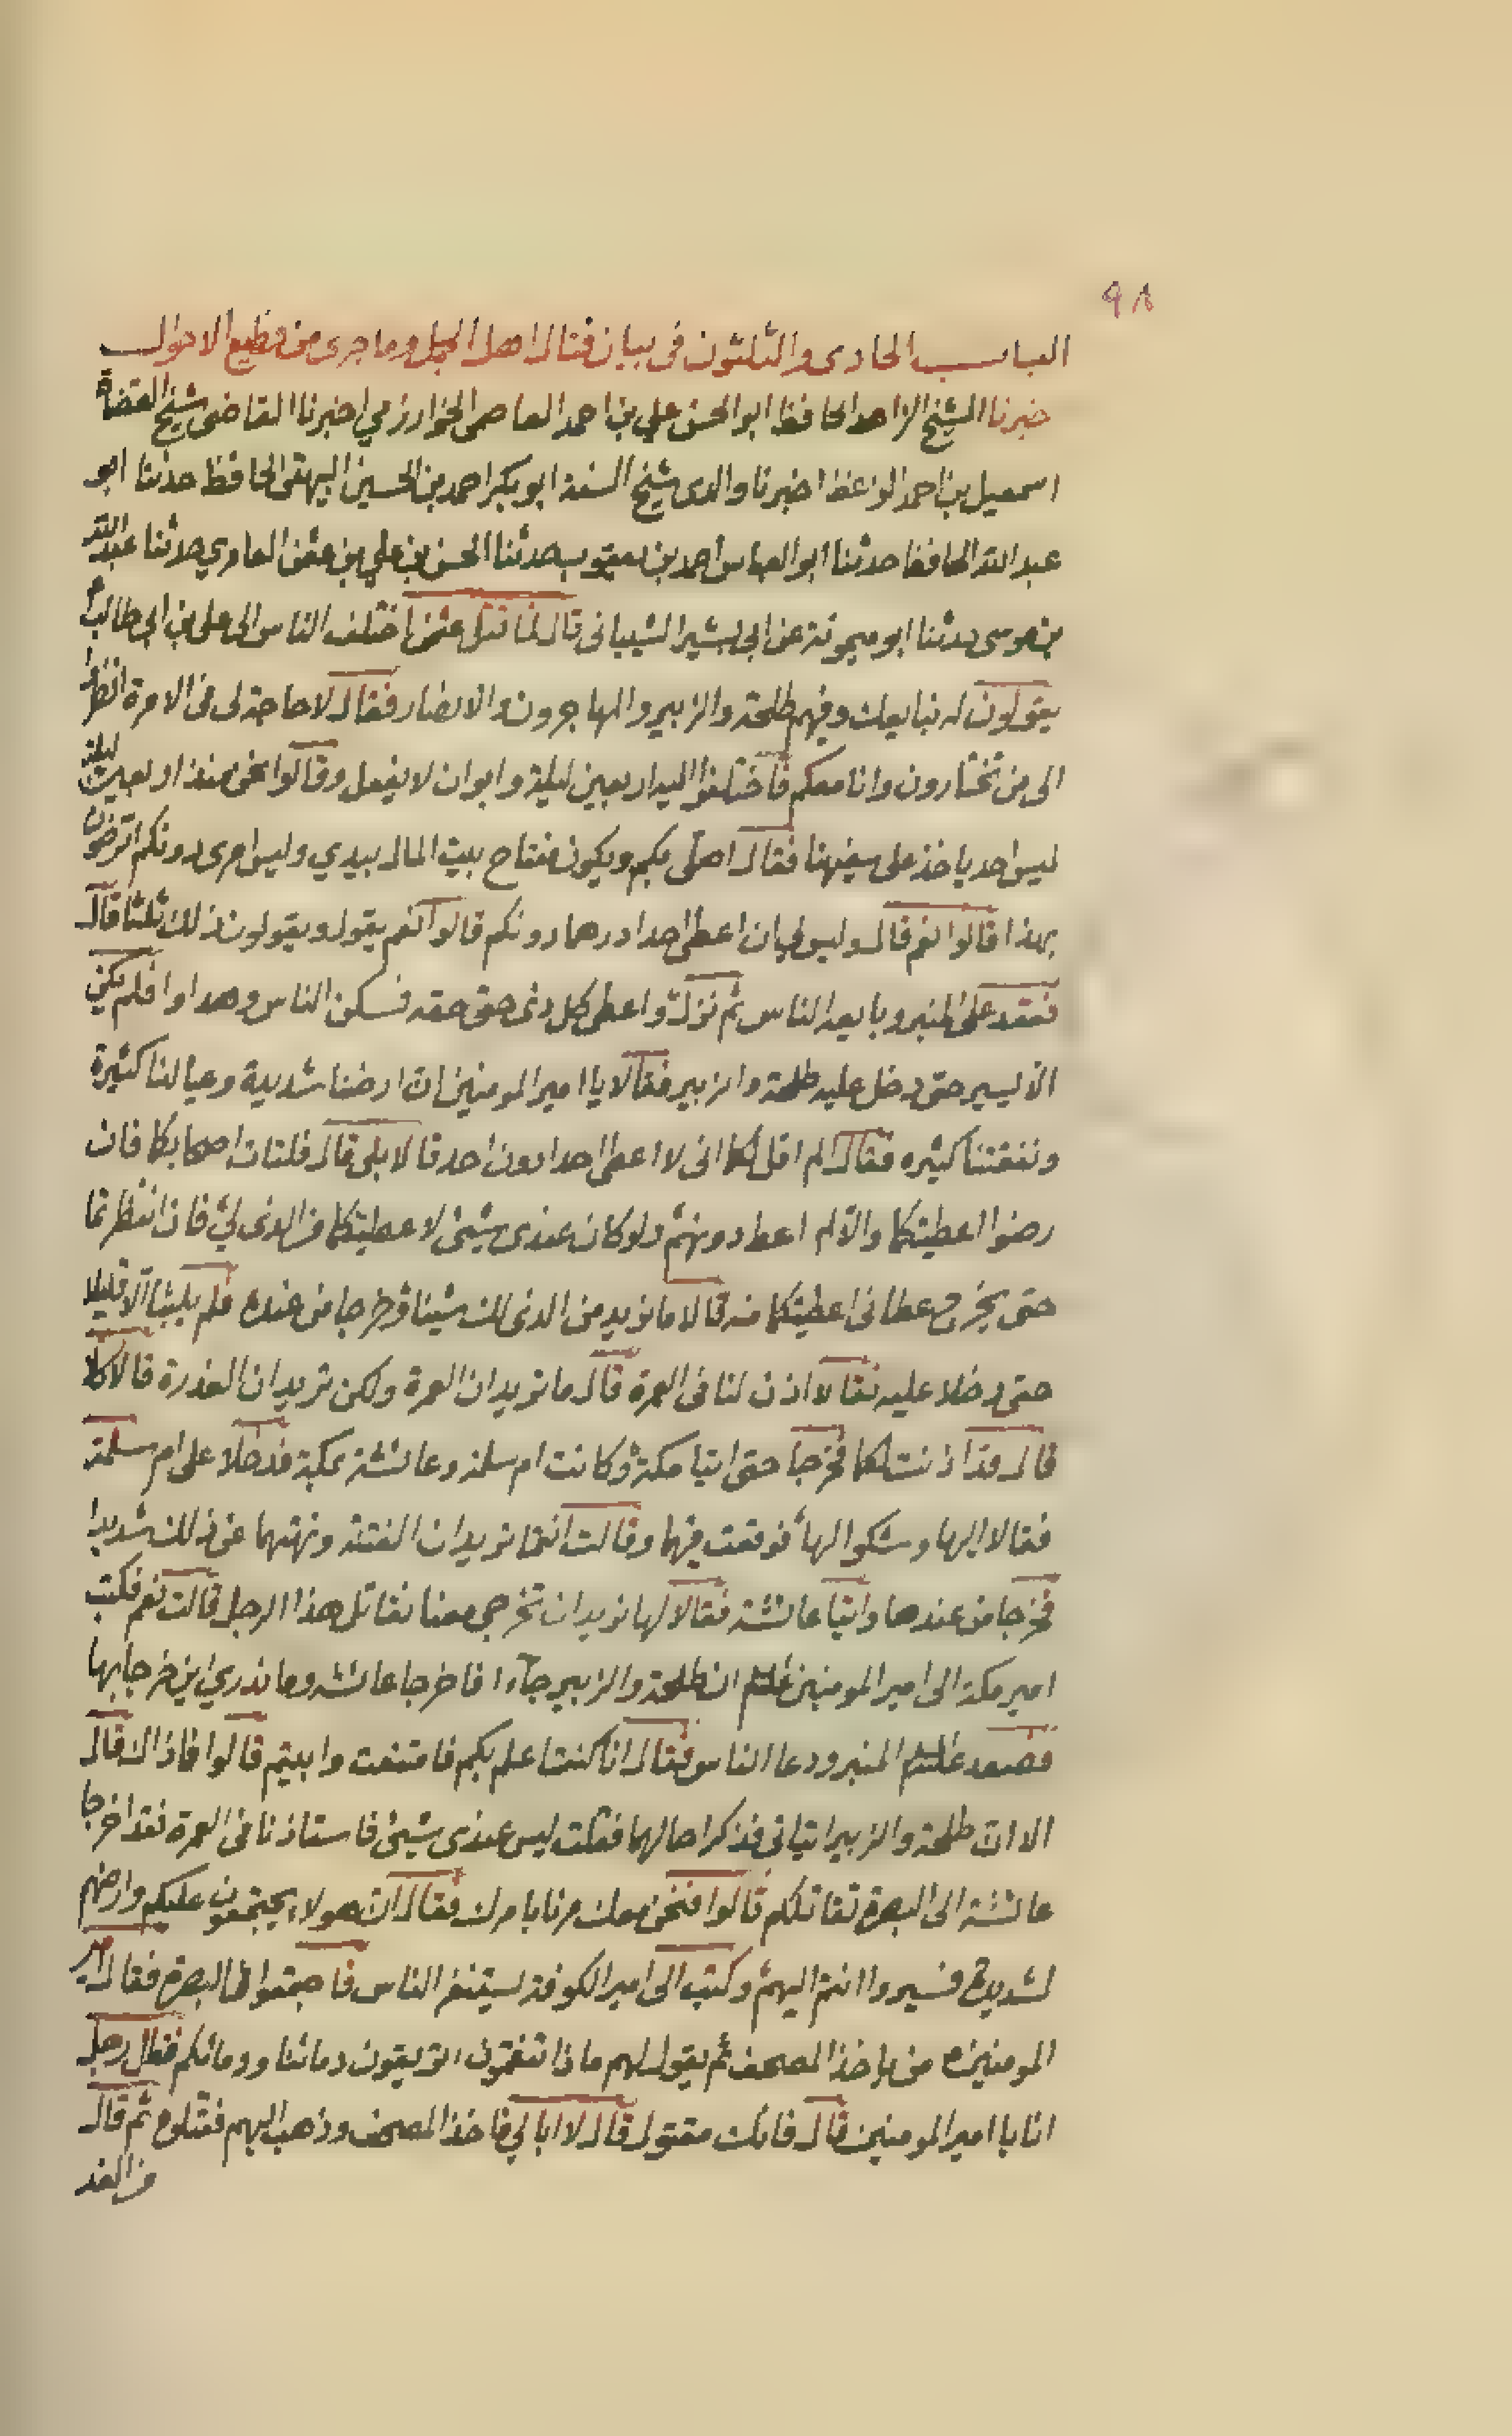 ٩٨
الباب الحادى والثلثون فى بيان قتال اهل الجمل وما جرى من فظيع الاحوال
خبرنا الشيخ الزاهد الحافظ ابو الحسن على بن احمد العاصمى الخوارزمي اخبرنا القاضى شيخ القضاة
اسمعيل بن احمد الواعظ اخبرنا والدى شيخ السنة ابو بكر احمد بن الحسين البيهقى الحافظ حدثنا ابو
عبد الله الحافظ حدثنا ابو العباس احمد بن يعقوب حدثنا الحسن بن علي بن عفن العامري حدثنا عبد الله
بن موسى حدثنا ابو ميمونة عن ابى بشير الشيبانى قال لما قتل عثمن اختلف الناس الى على بن ابى طالب
يقولون له نبايعك وفيهم طلحة والزبير والمهاجرون والانصار فقال لا حاجة لى فى الامرة انظروا
الى من تختارون وانا معكم فاختلفوا اليه اربعين ليلة وابوا ان لا يفعل وقالوا نحن منذ اربعين ليلة
ليس احد ياخذ على سفيهنا فقال اصلى بكم ويكون مفتاح بيت المال بيدي وليس امرى دونكم اترضون
بهذا قالوا نعم قال وليس لي ان اعطى احدا درهما دونكم قالوا نعم يقول ويقولون ذلك ثلثا قال
فقعد على المنبر وبايعه الناس ثم نزل واعطى كل ذى حق حقه فسكن الناس وهداوا فلم يكن
الا يسير حتى دخل عليه طلحة والزبير فقالا يا امير المومنين ان ارضنا شديدة وعيالنا كثيرة
ونفقتنا كثيره فقال الم اقل لكما انى لا اعطى احدا دون احد قالا بلى قال فلتات اصحابكا فان
رضوا اعطيتكما والا لم اعط دونهم ولو كان عندى شيئ لاعطيتكما من الذى لي فان انتظرتما
حتى يخرج عطائى اعطيتكما منه قالا ما نريد من الذى لك شيئا وخرجا من عنده فلم يلبثا الا قليلا
حتى دخلا عليه فقالا اذن لنا فى العمرة قال ما تريدان العمرة ولكن تريدان الغدرة قالا كلا
قال قد اذنت لكما فخرجا حتى اتيا مكة وكانت ام سلمة وعائشة بمكة فدخلا على ام سلمة
فقالا لها وشكوا لها فوقعت فيهما وقالت انتما تريدان الفتنة ونهتهما عن ذلك شديدا
فخرجا من عندها واتيا عائشة فقالا لها نريد ان تخرجى معنا نقاتل هذا الرجل قالت نعم فكتب
امير مكة الى امير المومنين علتلم ان طلحة والزبير جاءا فاخرجا عائشه وما ندري اين خرجا بها
فصعد علتلم المنبر ودعا الناس فقال انا كنت اعلم بكم فامتنعت وابيتم قالوا فماذاك قال
الا ان طلحة والزبير اتيانى فذكرا حالهما فقلت ليس عندى شيئ فاستاذنا فى العمرة فقد اخرجا
عائشة الى البصرة تقاتلكم قالوا فنحن معك مرنا بامرك فقال ان هولاء يجتمعون عليكم وارضهم
شديدة فسيروا انتم اليهم وكتب الى امير الكوفة يستنفر الناس فاجتمعوا بالبصرة فقال امير
المومنين من ياخذ المصحف ثم يقول لهم ماذا تنقمون تريقون دمائنا ودمائكم فقال رجل
انا يا امير المومنين قال فانك مقتول قال لا ابالي فاخذ المصحف وذهب اليهم فقتلوه ثم قال
من الغد